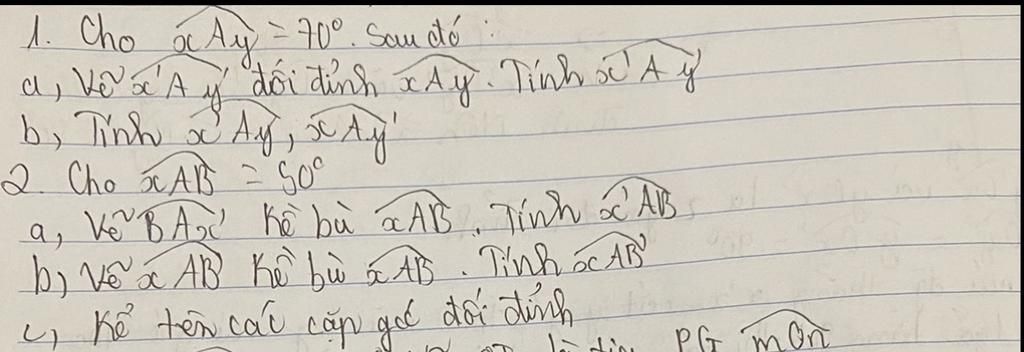 1. Cho xAy = 70°. Sau đó :
a, Vẽ x'Ay' đối đỉnh xAy. Tính x'Ay'
b, Tính x'Ay, xAy'
2. Cho xAB = 50°
a, Vẽ BAx' kề bù xAB. Tính x'AB
b) Vẽ xAB' kề bù xAB. Tính xAB'
c, Kể tên các cặp góc đối đỉnh
PG mOn